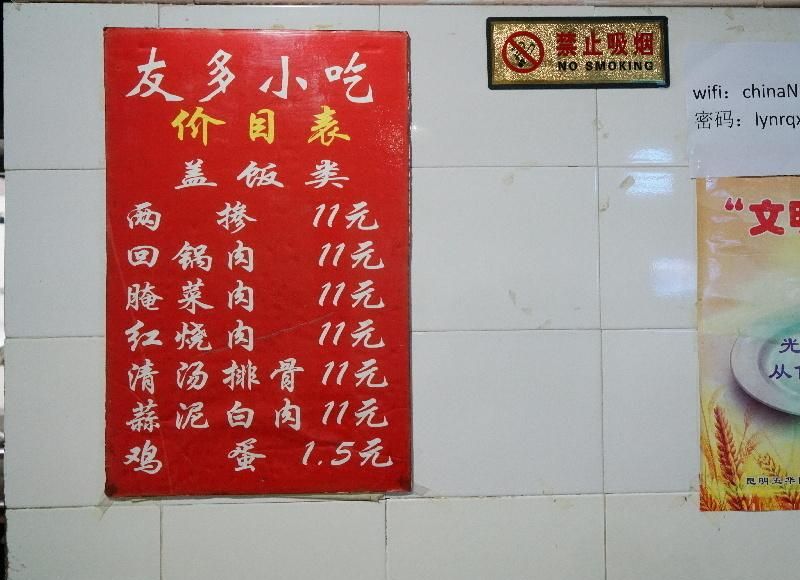 友多小吃
价目表
盖饭类
两掺 11元
回锅肉 11元
腌菜肉 11元
红烧肉 11元
清汤排骨 11元
蒜泥白肉 11元
鸡蛋 1.5元
禁止吸烟
NO SMOKING
wifi: chinaN
密码: lynrqx
“文明
光
昆明五华